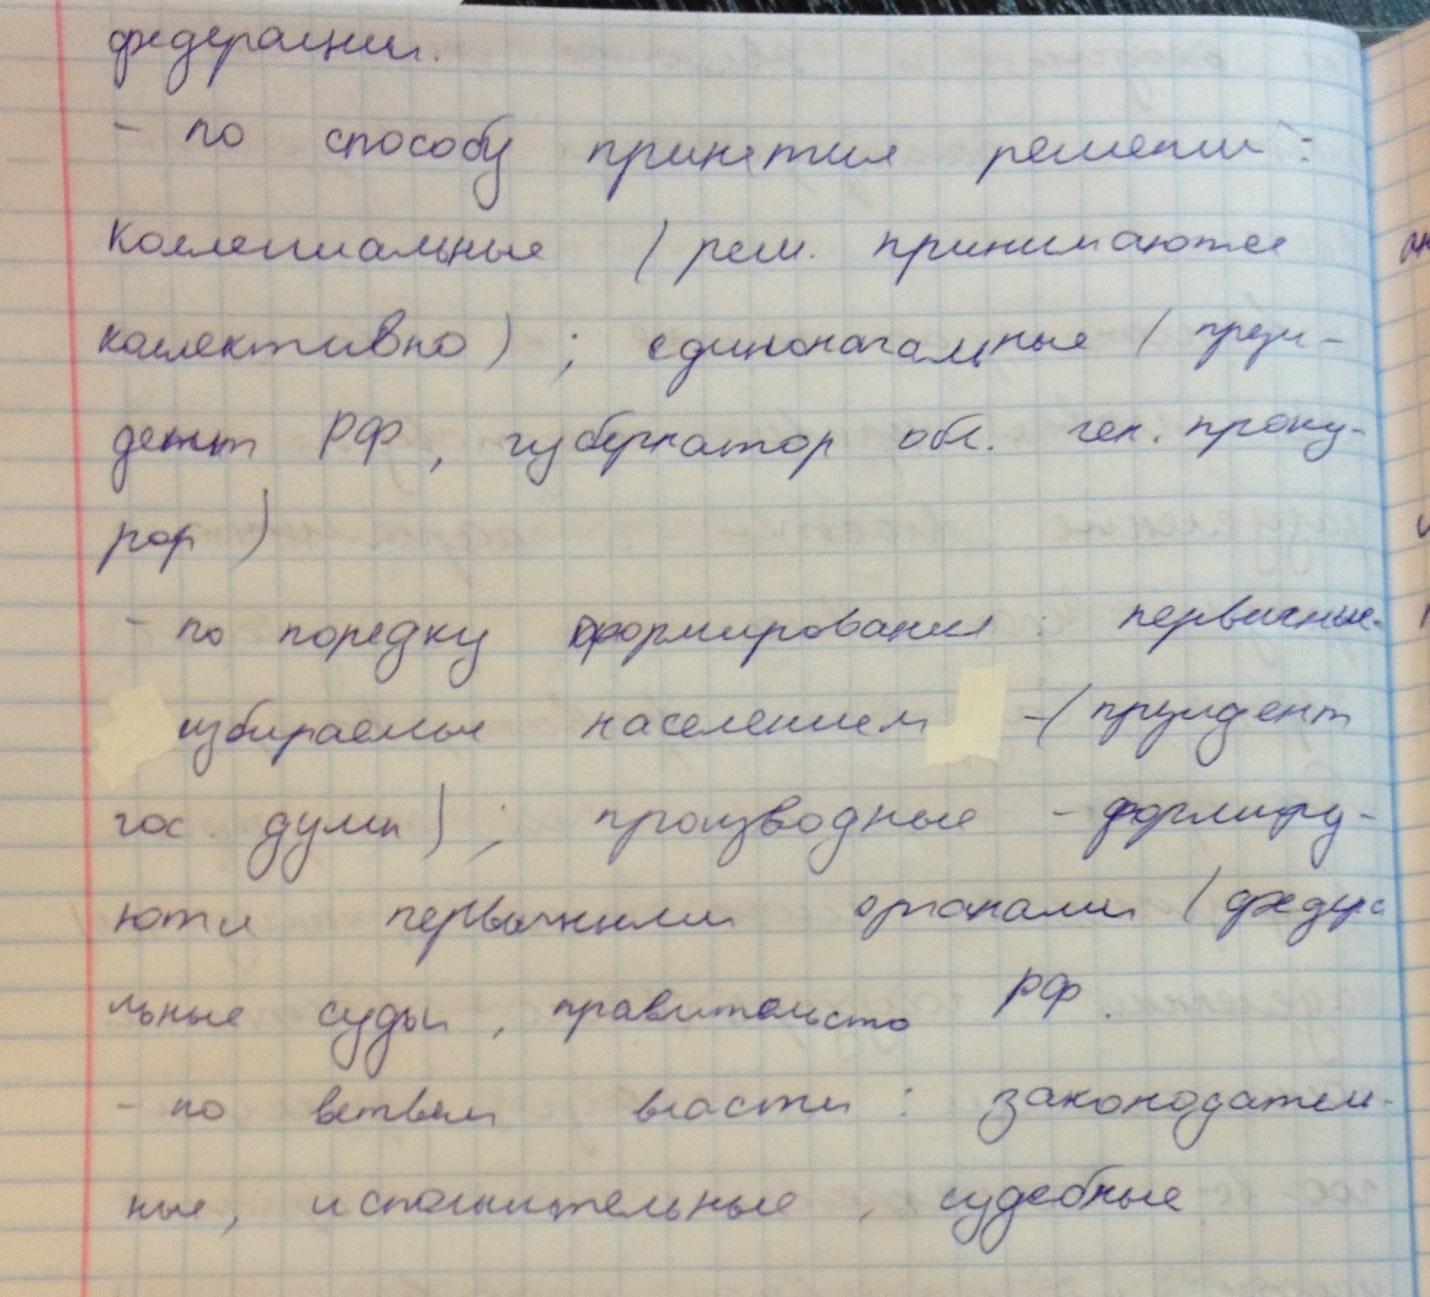 федерации.
- по способу принятия решений:
коллегиальные (реш. принимаются
коллективно); единоначальные (прези-
дент РФ, губернатор обл. ген. проку-
рор)
- по порядку формирования: первичные-
избираемые населением -(президент
гос. думы); производные - формиру-
ются первичными органами (федера
льные суды, правительство РФ.
- по ветвям власти: законодатель-
ные, исполнительные, судебные